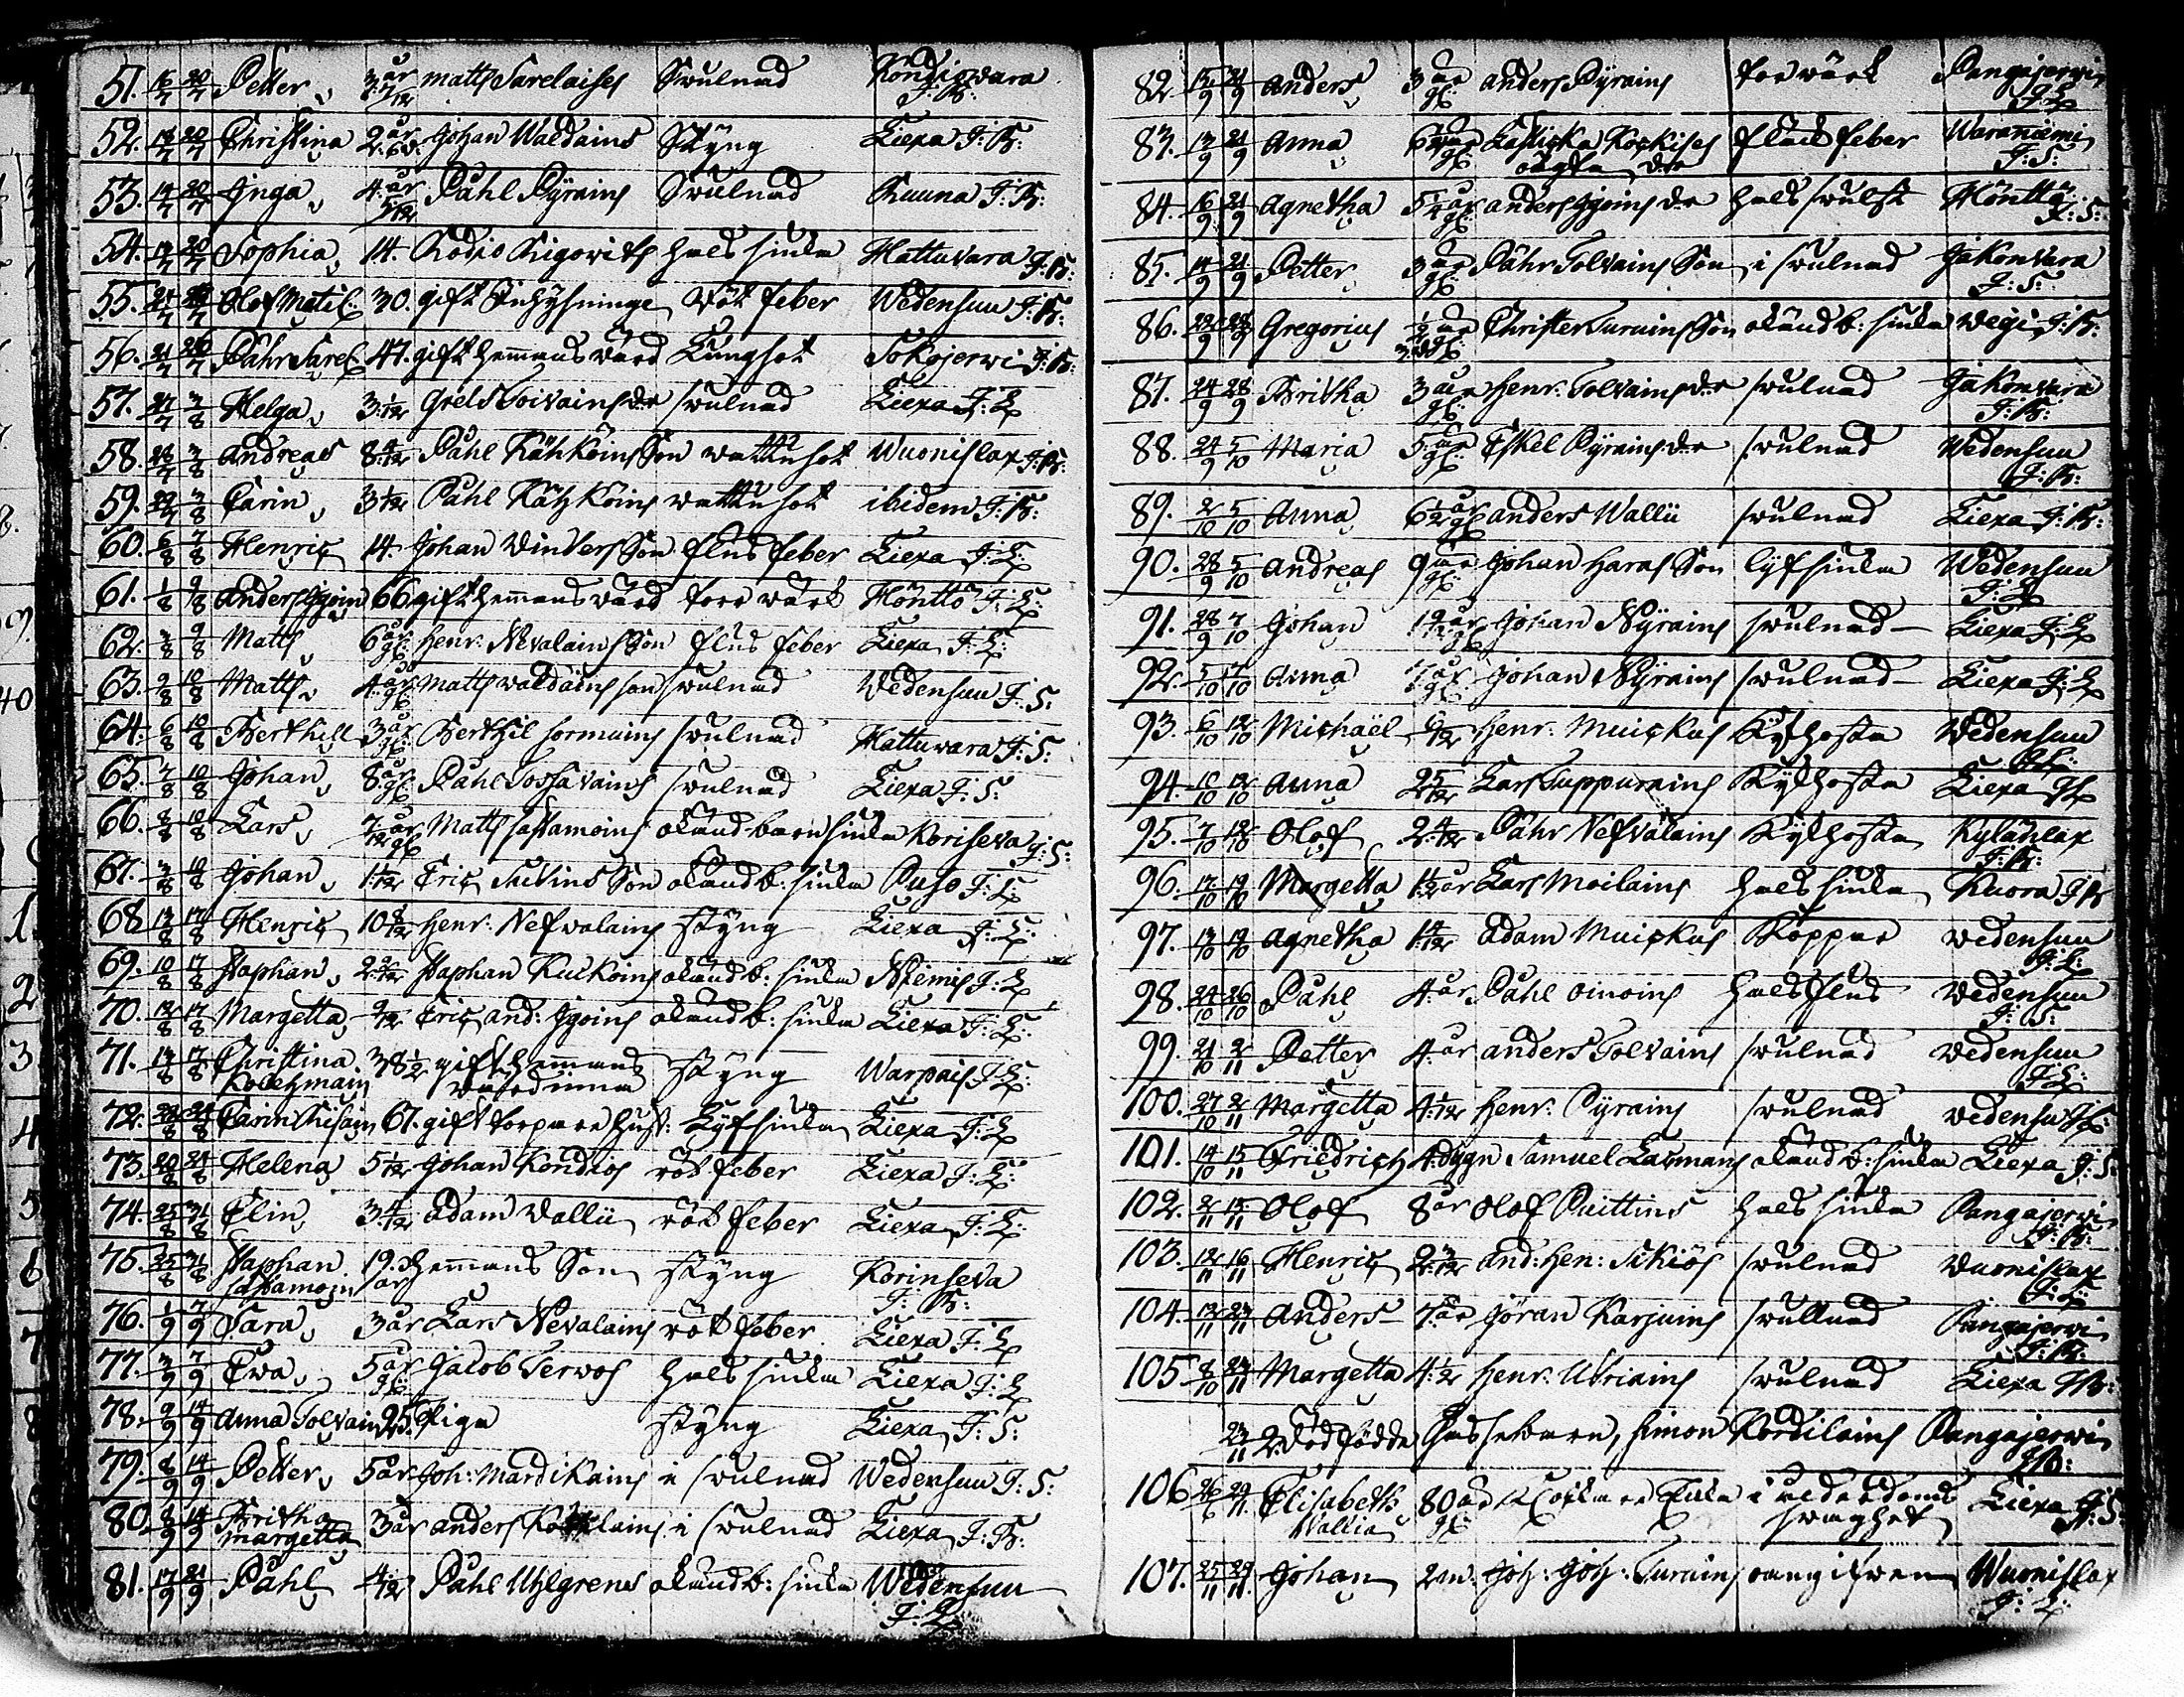 51. 16/7 20/7 Petter 3 år 7/12 Matts Sarelaises Swulnad Kondiowara J: B:
52. 17/7 20/7 Christina 2 år Johan Waldains Styng Liexa J: B:
53. 14/7 20/7 Inga 4 år Påhl Pyrains Swulnad Ruuna J: B:
54. 17/7 20/7 Sophia 14. Rodio Rigowits hals siuka Hattuvara J: B:
55. Olof Matil: 30. gift Inhysninge Röt feber Wedensuu J: B:
56. Påhr Sarel: 47. gift hemmans värd Lungsot Sokojerwi J: B:
57. 27/7 3/8 Helga 3 1/12 Grels Toivains dr swulnad Liexa J: L:
58. 28/7 3/8 Andreas 8 4/12 Påhl Kähköins Son wattusot Wuonislax J: B:
59. 29/7 3/8 Carin 3 1/12 Påhl Kähköins wattusot ibidem J: B:
60. 6/8 7/8 Henric 14. Johan Vinters Son flus feber Liexa J: L:
61. 1/8 9/8 Anders Igoin 66 gift hemmans värd torr wärk Höntto J: L:
62. 3/8 9/8 Matts 6 år Henr: Nevalains Son flus feber Liexa J: L:
63. 9/8 10/8 Matts 4 år Matts Waldains son swulnad Wedensuu J: S:
64. 6/8 10/8 Berthill 3 år Berthil sormuins swulnad Hattuwara J: S:
65. 7/8 10/8 Johan 8 år Påhl Tossavains swulnad Liexa J: S:
66. 8/8 10/8 Lars 7/12 Matts sastamoins okänd barn siuka Koriseva J: S:
67. 3/8 10/8 Johan 1 1/12 Eric Sutins Son okänd b: siuka Puso J: L:
68. 13/8 17/8 Henric 10 8/12 Henr: Nefvalains styng Liexa J: L:
69. 10/8 17/8 Staphan Staphan Kuckoins okänd b: siuka Niemis J: L:
70. 12/8 17/8 Margetta Eric And: Igoins okänd b: siuka Liexa J: L:
71. 13/8 17/8 Christina 38 1/2 gift hemmans styng Warpais J: L:
värdinna
72. Carin 67. gift torpare hust: Lyfsiuka Liexa J: L:
73. Helena 5 1/12 Johan Kondios röt feber Liexa J: L:
74. 25/8 31/8 Elin 3 4/12 Adam Vallii röt feber Liexa J: L:
75. 25/8 31/8 Staphan 19. Hemmans Son styng Korinseva
sastamoin år J: B:
76. 1/9 7/9 Sara 3 år Lars Nevalains röt feber Liexa J: L:
77. 3/9 7/9 Ewa 5 år Jacob Terwos hals siuka Liexa J: L:
78. 9/9 14/9 Anna Tolvain 25. Piga styng Liexa J: S:
79. 8/9 14/9 Petter 5 år Joh: Mardikains i swulnad Wedensuu J: S:
80. Britha 3 år Anders i swulnad Liexa J: B:
Margetta
81. 17/9 21/9 Påhl 4/12 Påhl Uhlgrens okänd b: siuka Wedensuu
J: L:
82. 15/9 21/9 Anders 3 år Anders Pyrains torr wärk Pangajerwi J: L:
83. 13/9 21/9 Anna Kockises fläck feber Waraniemi
J: S:
84. 16/9 21/9 Agnetha 5 år Anders Igoins dr hals swulst Hönttö J: S:
85. 14/9 21/9 Petter 3 år Påhr Tolvains Son i swulnad Jakonvara
J: S:
86. 22/9 28/9 Gregorius 1/2 år Christer Turuins Son okänd b: siuka Wegi J: B:
87. 24/9 28/9 Britha 3 år Henr: Tolvains dr swulnad Jakonvara
J: B:
88. 24/9 5/10 Maria 5 år Eskel Pyrains dr swulnad Wedensuu
J: B:
89. 2/10 5/10 Anna 6 1/2 år Anders Wallii swulnad Liexa J: B:
90. 28/9 5/10 Andreas 9 år Johan Haras Son lyfsiuka Wedensuu
J: L:
91. 28/9 7/10 Johan Johan Pyrains swulnad Liexa J: L:
92. 5/10 Anna 7 år Johan Pyrains swulnad Liexa J: L:
93. 6/10 12/10 Michaël Henr: Muickus Kikhosta Wedensuu
94. 10/10 12/10 Anna 2 5/12 Lars Tuppurains Kikhosta Liexa
95. 7/10 12/10 Olof 2 4/12 Påhr Nefvälains Kikhosta Kylänlax
J: B:
96. 17/10 19/10 Margetta Lars Moilains hals siuka Ruora J: B
97. 13/10 19/10 Agnetha 1 4/12 Adam Muickus Koppor Wedensuu
J: L:
98. 24/10 26/10 Påhl 4 år Påhl Oinoins hals flus Wedensuu
J: S:
99. 21/10 2/11 Petter 4 år Anders Tolvains swulnad Wedensuu
J: L:
100. 27/10 2/11 Margetta 4 1/12 Henr: Pyrains swulnad Wedensu
101. 14/10 15/11 Friedrich 4 dygn Samuel Lasmans okänd b: siuka Liexa J: S:
102. 2/11 15/11 Olof 8 år Olof Puittins hals siuka Pangajerwi
J: B:
103. 12/11 16/11 Henric 2 3/12 And: Hen: Sikiös swulnad Wuonislax
J: L:
104. 13/11 23/11 Anders 7 år Jöran Karjuins swullnad Pangajerwi
J: B:
105 8/10 23/11 Margetta 4 1/2 Henr: Uriains swulnad Liexa J B:
23/11 2 dödfödde gossebarn, Simon Kordilains Pangajerwi
J B:
106 Elisabeth 80 år Enka i ålderdoms Liexa J: S:
Wallia swaghet
107. 25/11 29/11 Johan 2 w. Joh: Joh: Turuins oangifwen Wuonislax
J: L: